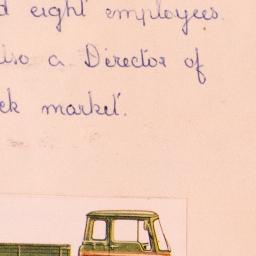 d eight employees.
also a Director of
ck market.